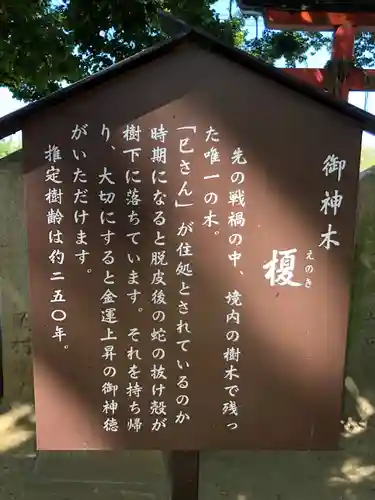 御神木
榎
えのき
先の戦禍の中、境内の樹木で残っ
た唯一の木。
「巳さん」が住処とされているのか
時期になると脱皮後の蛇の抜け殻が
樹下に落ちています。それを持ち帰
り、大切にすると金運上昇の御神徳
がいただけます。
推定樹齢は約二五〇年。